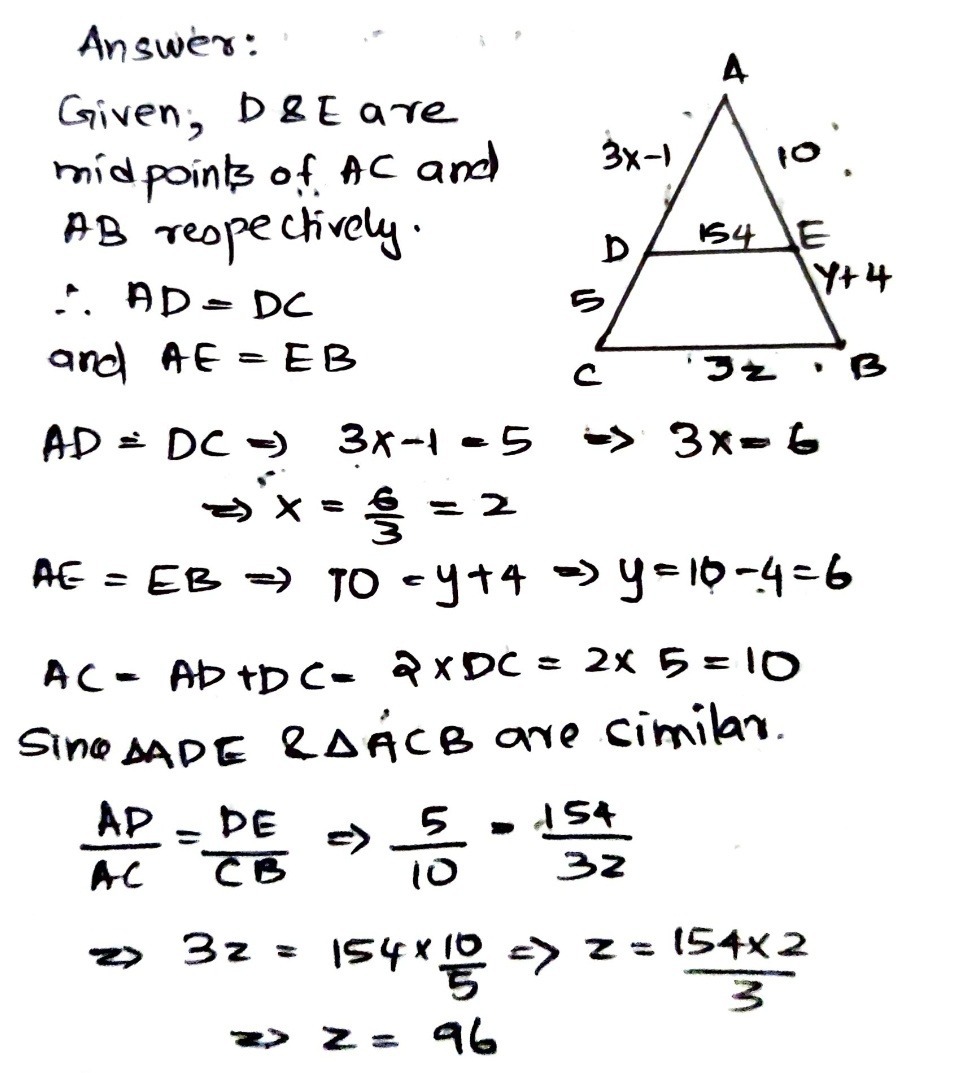 Answer:
Given; D & E are
midpoints of AC and
AB respectively.
∴ AD = DC
and AE = EB
A
3x-1
10
D
154
E
5
y+4
C
3z
B
AD = DC ⇒ 3x-1 = 5 ⇒ 3x = 6
⇒ x = 6/3 = 2
AE = EB ⇒ 10 = y+4 ⇒ y = 10-4 = 6
AC = AD + DC = 2 x DC = 2x 5 = 10
Sine ΔADE & ΔACB are similar.
AD/AC = DE/CB ⇒ 5/10 = 154/3z
⇒ 3z = 154 x 10/5 ⇒ z = 154x2/3
⇒ z = 96